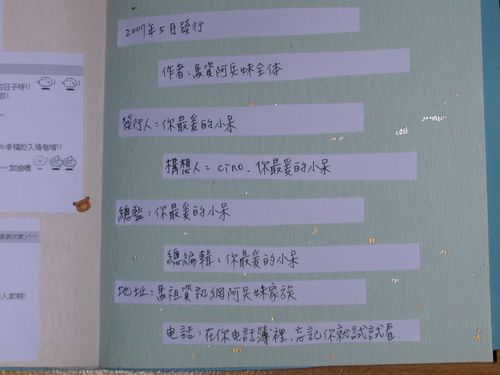 的日子呀!!
~幸福的入場卷唷!!
~~加油喔
2007年5月發行
作者:馬資阿兵妹全体
發行人:你最爱的小呆
構想人:cino、你最爱的小呆
總監:你最爱的小呆
總編輯:你最爱的小呆
地址:馬祖資訊網阿兵妹家族
电話:在你电話簿裡、忘記你就試試看.